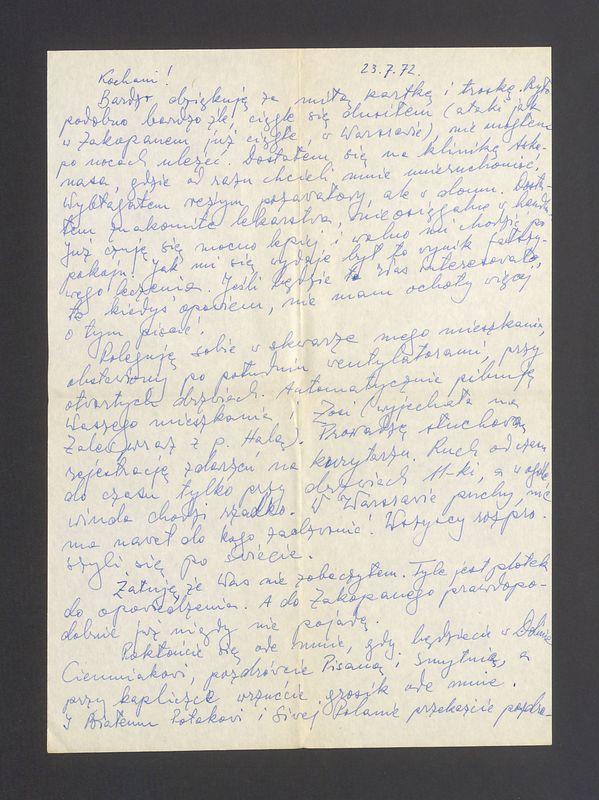 23.7.72.
Kochani!
Bardzo dziękuję za miłą kartkę i troskę. Było
podobno bardzo źle, ciągle się dusiłem (ataki jak
w Zakopanem już ciągle, w Warszawie), nie mogłem
po nocach uleżeć. Dostałem się na klinikę Aska-
nasa, gdzie od razu chcieli mnie unieruchomić.
Wybłagałem reżym pozawałowy, ale w domu. Dosta-
łem znakomite lekarstwa, nieosiągalne w handlu
Już czuję się mocno lepiej i wolno mi chodzić po
pokoju. Jak mi się wydaje był to wynik fałszy-
wego leczenia. Jeśli będzie to Was interesowało
to kiedyś opowiem, nie mam ochoty więcej
o tym pisać.
Poleguję sobie w skwarze mego mieszkania,
obstawiony po południu wentylatorami, przy
otwartych drzwiach. Automatycznie pilnuję
Waszego mieszkania i Zosi (wyjechała na
Zalew wraz z p. Halą). Prowadzę słuchową
rejestrację zdarzeń na kurytarzu. Ruch od czasu
do czasu tylko przy drzwiach 11-ki, a w ogóle
winda chodzi rzadko. W Warszawie puchy, nie
ma nawet do kogo zadzwonić. Wszyscy rozpro-
szyli się po świecie.
Żałuję, że Was nie zobaczyłem. Tyle jest plotek
do opowiedzenia. A do Zakopanego prawdopo-
dobnie już nigdy nie pojadę.
Pokłońcie się ode mnie, gdy będziecie w Dolinie
Ciemniakowi, pozdrówcie Pisaną i Smytnią, a
przy kapliczce wrzućcie grosik ode mnie.
I Białemu Potokowi i Siwej Polanie przekażcie pozdro-